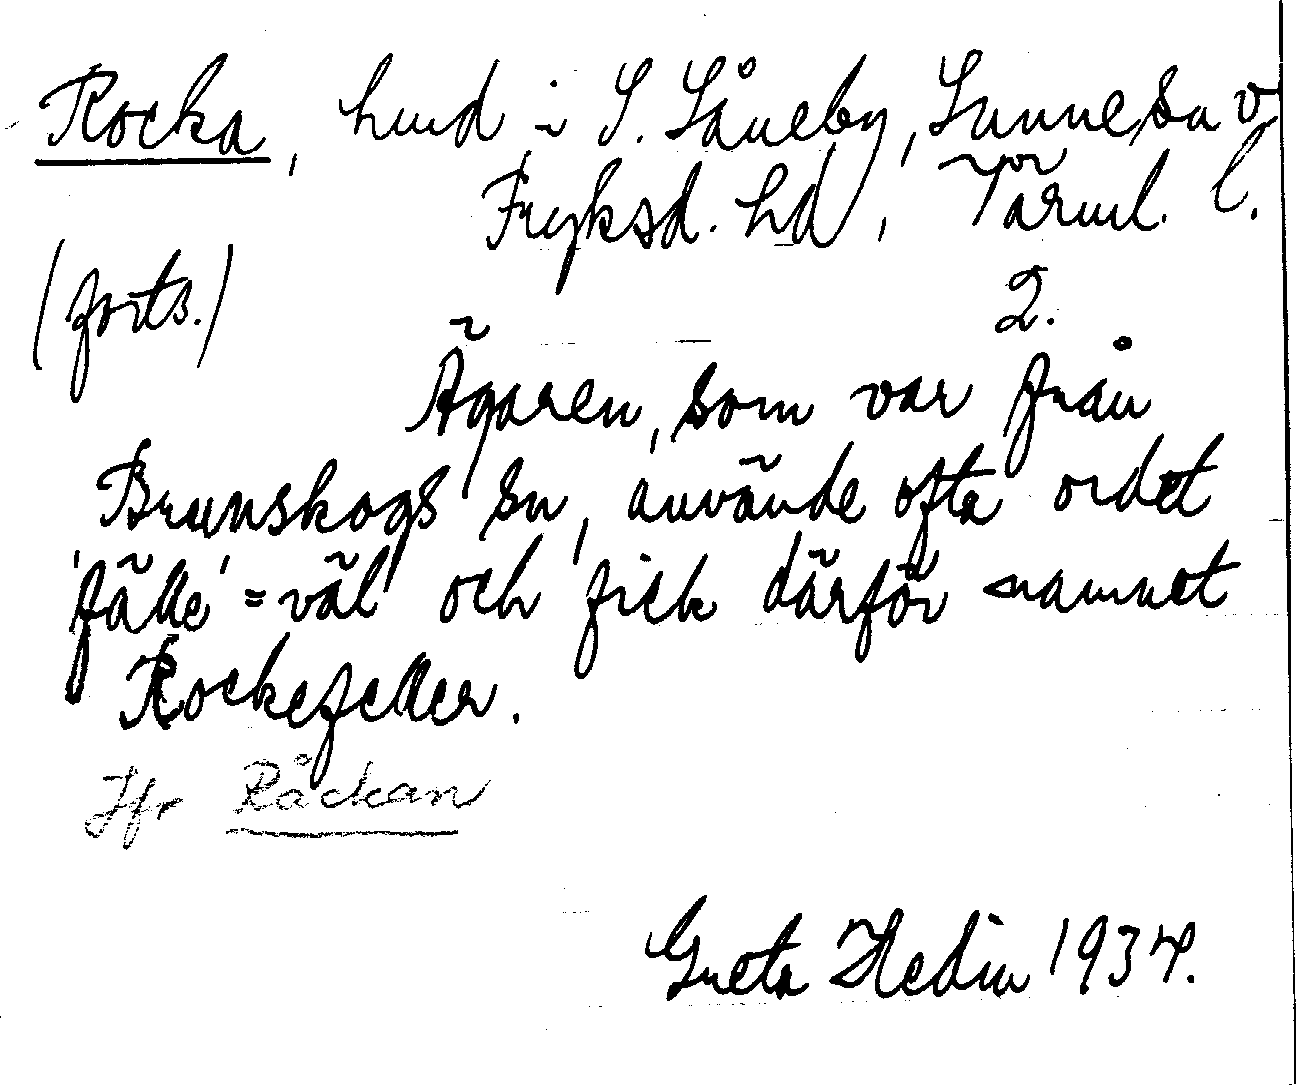 Rocka, hmd i S. Såneby, Sunne sn v
Fryksd. hd, Värml. l.
(forts.)
2.
Ägaren, som var från
Brunskogs sn, använde ofta ordet
'fälle' = väl och fick därför namnet
Rockefeller.
Jfr Råckan
Greta Hedin 1934.